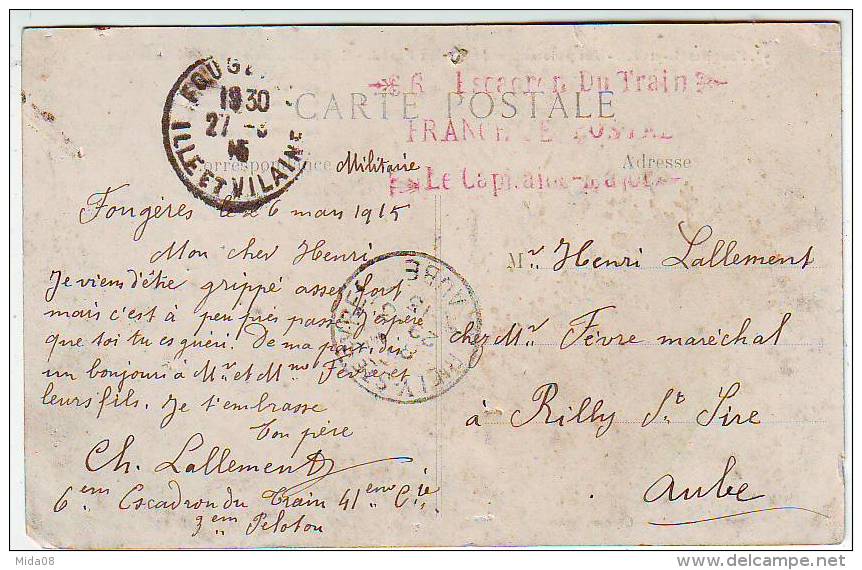 FOUGÈRES
19 30
27 -3
15
ILLE ET VILAINE
6e Escadron Du Train
CARTE POSTALE
FRANCHISE POSTALE
Le Capitaine-Major
Correspondance Militaire
Adresse
Fougères le 26 mars 1915
Mon cher Henri
Je viens d'être grippé assez fort
mais c'est à peu près passé J'espère
que toi tu es guéri. De ma part, dis
un bonjour à Mr et Mme Fèvre et
leurs fils. Je t'embrasse
Ton père
Ch. Lallement
6em Escadron du Train 41eme Cie
9em Peloton
Mr. Henri Lallement
chez Mr Fèvre maréchal
à Rilly Ste Sire
Aube
AUBE
Mida08
delcampe.net